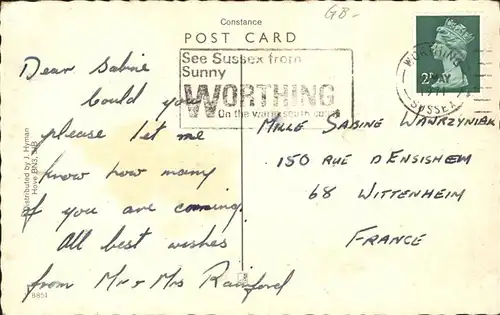 Constance
GB-
POST CARD
See Sussex from
Sunny
WORTHING
On the warm south coast
WORTHING
MAY
SUSSEX
2½P
Dear Sabine
Could you
please let me
know how many
of you are coming.
All best wishes
from Mr & Mrs Rainford
MLLE SABINE WAWRZYNIAK
150 RUE D'ENSISHEIM
68 WITTENHEIM
FRANCE
Distributed by J. Hyman
Hove BN3
8804